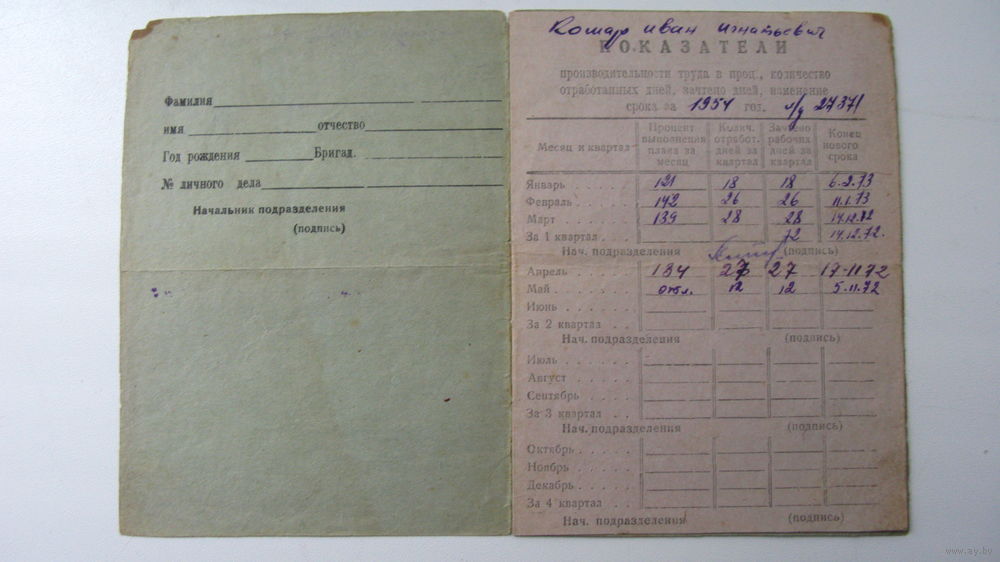 Фамилия
имя отчество
Год рождения Бригад.
№ личного дела
Начальник подразделения
(подпись)
Комар Иван Игнатьевич
ПОКАЗАТЕЛИ
производительности труда в проц., количество
отработанных дней, зачтено дней, изменение
срока за 1954 год. л/д 27371
Месяц и квартал Процент выполнения плана за месяц Колич. отработ. дней за квартал Зачтено рабочих дней за квартал Конец нового срока
Январь 121 18 18 6.2.73
Февраль 142 26 26 11.1.73
Март 139 28 28 14.12.72
За 1 квартал 72 14.12.72.
Нач. подразделения (подпись)
Апрель 134 27 27 17.11.72
Май отл. 12 12 5.11.72
Июнь
За 2 квартал
Нач. подразделения (подпись)
Июль
Август
Сентябрь
За 3 квартал
Нач. подразделения (подпись)
Октябрь
Ноябрь
Декабрь
За 4 квартал
Нач. подразделения (подпись)
www.ay.by